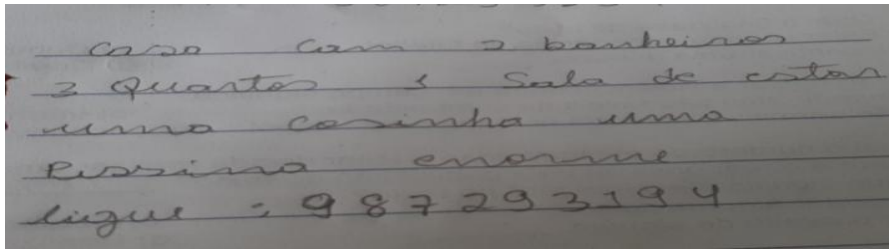 casa com 2 banheiros
3 Quartos 1 Sala de estar
uma cosinha uma
Pissina enorme
ligue : 987293194